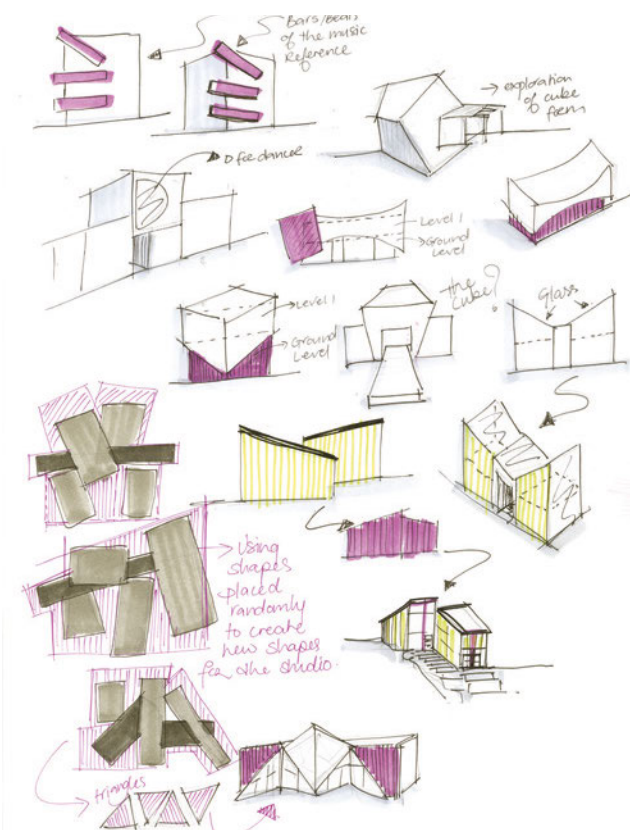 Bars/Beats
of the music
Reference
exploration
of cube
form
for dancer
Level 1
Ground
Level
Level 1
Ground
Level
the
cube?
Glass
Using
shapes
placed
randomly
to create
new shapes
for the studio.
triangles